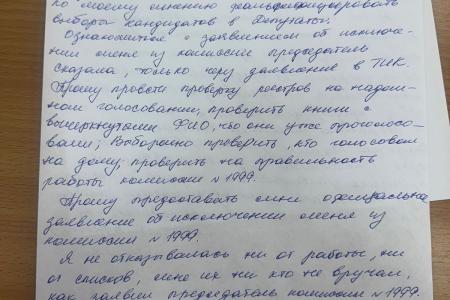 по моему мнению фальсифицировать
выборы кандидатов в Депутаты.
Ознакомится с заявлением от исключе-
нии меня из комиссии председатель
сказала, только через заявление в ТИК.
Прошу провести проверку реестров на надом-
ном голосовании, проверить книги с
вычеркнутыми ФИО, что они уже проголосо-
вали; Выборочно проверить, кто голосовал
на дому, проверить на правильность
работы комиссии № 1999.
Прошу предоставить мне
заявление об исключении меня из
комиссии № 1999.
Я не отказывалась ни от работы, ни
от списков, мне их ни кто не вручал,
как заявил председатель комиссии № 1999.